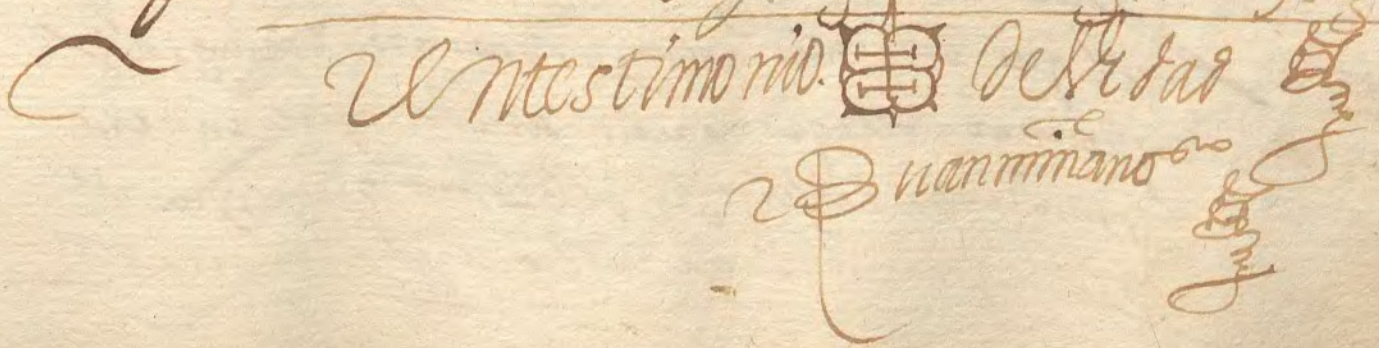 En testimonio. de Vrdad
Juan minano